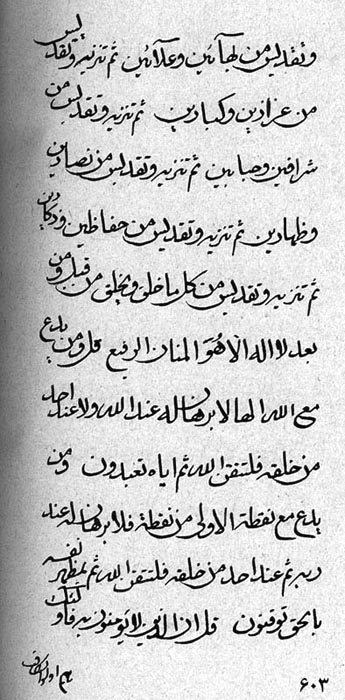 وتقديس من لهآئين وعلآئين ثم تنزيه وتقديس
من عزازين وكبادين ثم تنزيه وتقديس من
شرافين وحبابين ثم تنزيه وتقديس من نصارين
وظهارين ثم تنزيه وتقديس من حفاظين
ثم تنزيه وتقديس من كل ما خلق ويخلق من قبل ومن
بعد لا اله الا هو المنان الرفيع قل ومن يدع
مع الله الها لا برهان له عند الله ولا عند احد
من خلقه فلتتقن الله ثم اياه تعبدون ومن
يدع مع نقطة الاولى من نقطة فلا برهان له عند
ربه ثم عند احد من خلقه فلتتقن الله ثم بمظهر نفسه
بالحق توقنون قل ان الذين لا يؤمنون به فاولئك
هم
٦٠٣